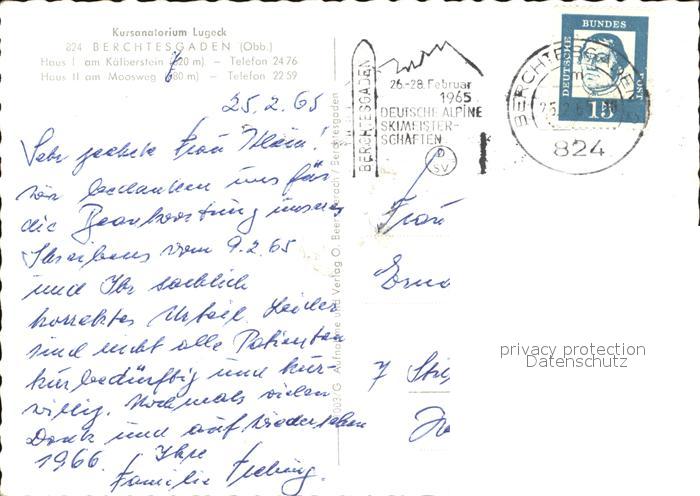 Kursanatorium Lugeck
824 BERCHTESGADEN (Obb.)
Haus I am Kälberstein (720 m) – Telefon 24 76
Haus II am Moosweg (680 m) – Telefon 22 59
25.2.65
Sehr geehrte Frau
wir bedanken uns für
die Beantwortung unseres
Schreibens vom 9.2.65
und Ihr sachlich
korrektes Urteil. Leider
sind nicht alle Patienten
kurbedürftig und kur-
willig. Nochmals vielen
Dank und auf Wiedersehen
1966. Ihre
Familie
Aufnahme und Verlag O. Beer
Berchtesgaden
BERCHTESGADEN
26.-28. Februar
1965
DEUTSCHE ALPINE
SKIMEISTER-
SCHAFTEN
D
SV
BERCHTESGADEN
824
DEUTSCHE BUNDESPOST
15
Frau
7
privacy protection
Datenschutz